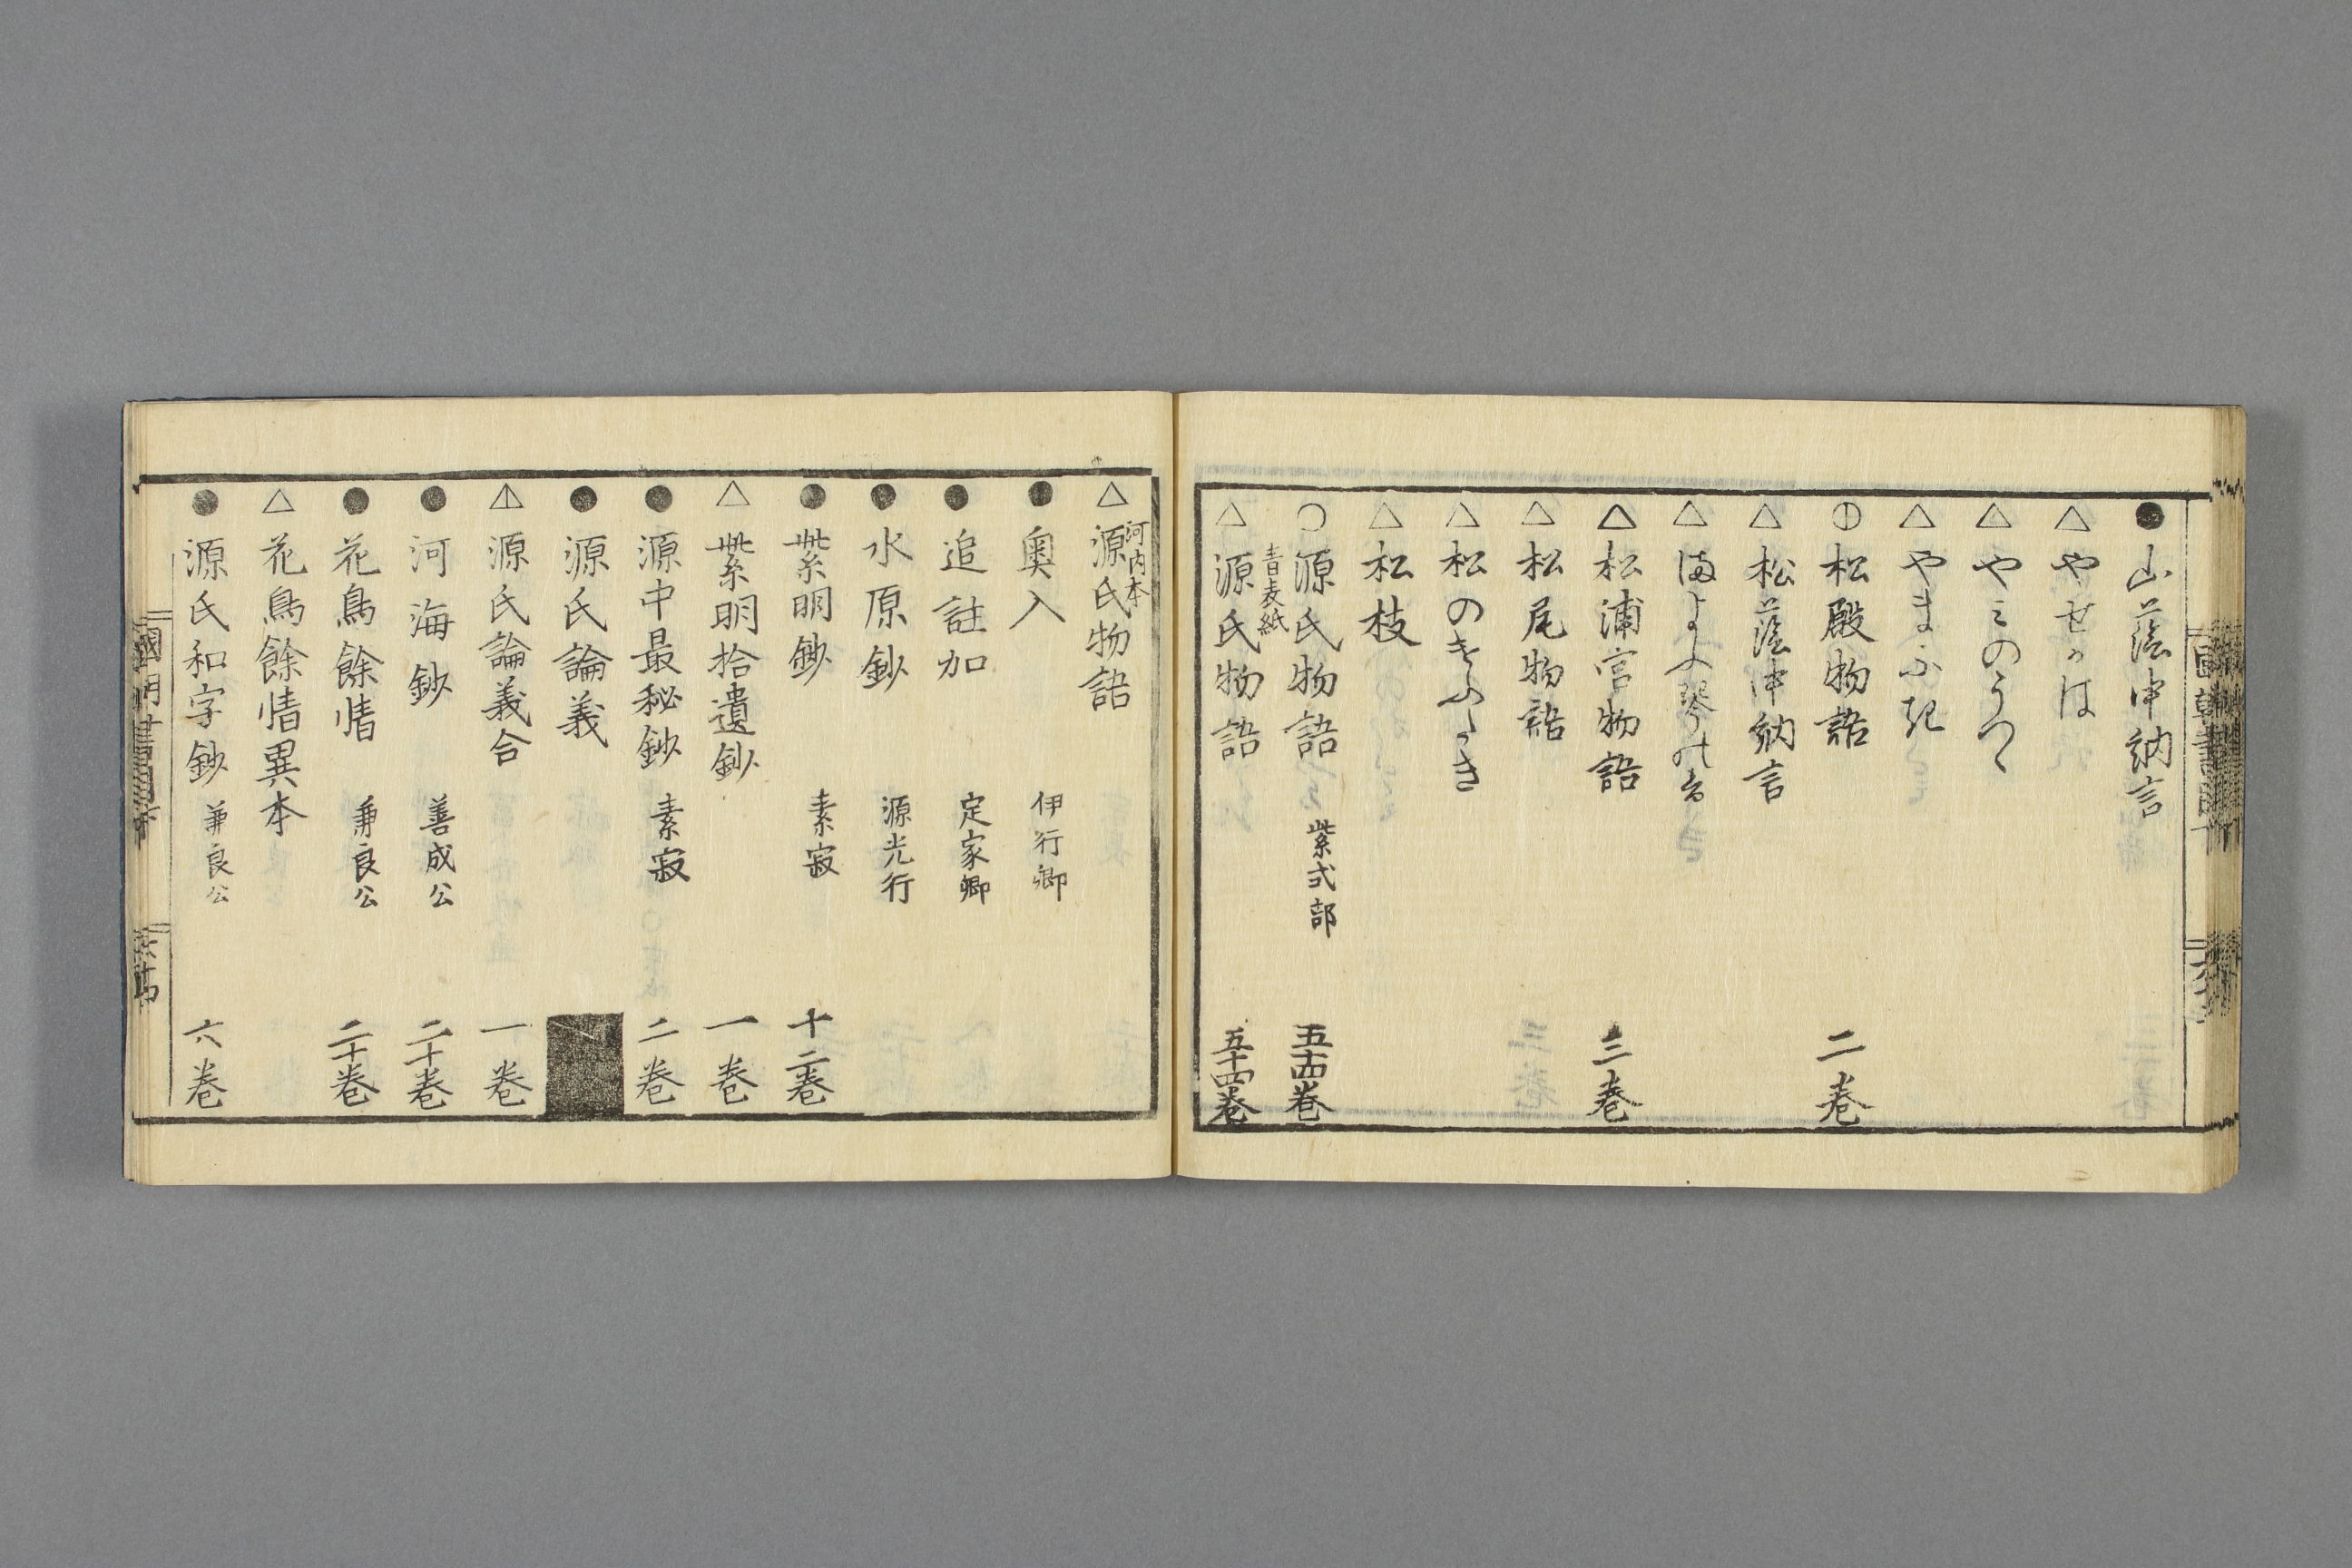 ● 山蔭中納言
△ やせかは
△ やみのうつゝ
△ やまふき
⦶ 松殿物語 二巻
△ 松蔭中納言
△ 琴の音
△ 松浦宮物語 三巻
△ 松尾物語
△ 松の
△ 松枝
○ 源氏物語 紫式部 五十四巻
△ 青表紙 源氏物語 五十四巻
△ 河内本 源氏物語
● 奥入 伊行卿
● 追註加 定家卿
● 水原鈔 源光行
● 紫明鈔 素寂 十二巻
△ 紫明拾遺鈔 一巻
● 源中最秘鈔 素寂 二巻
● 源氏論義
◬ 源氏論義合 一巻
● 河海鈔 善成公 二十巻
● 花鳥餘情 兼良公 二十巻
△ 花鳥餘情異本
● 源氏和字鈔 兼良公 六巻